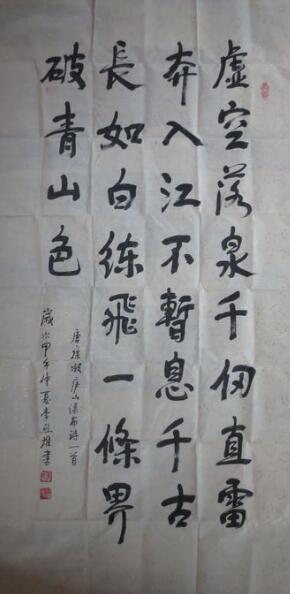 虚空落泉千仞直雷
奔入江不暫息千古
長如白练飛一條界
破青山色
唐徐凝庐山瀑布詩一首
歲次甲午仲夏李雄書